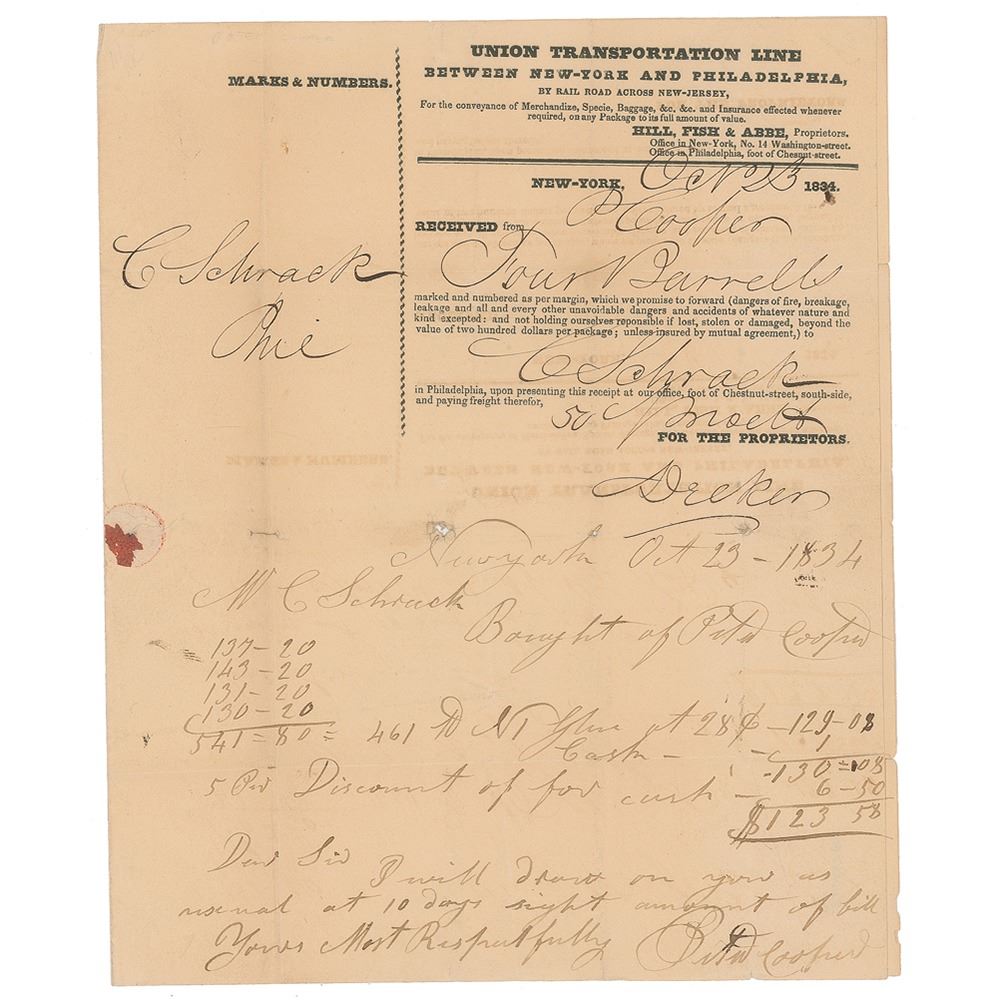 UNION TRANSPORTATION LINE
BETWEEN NEW-YORK AND PHILADELPHIA,
BY RAIL ROAD ACROSS NEW-JERSEY,
For the conveyance of Merchandize, Specie, Baggage, &c. &c. and Insurance effected whenever
required, on any Package to its full amount of value.
HILL, FISH & ABBE, Proprietors.
Office in New-York, No. 14 Washington-street.
Office in Philadelphia, foot of Chesnut-street.
MARKS & NUMBERS.
C Schrack
Phie
NEW-YORK, Oct 23 1834.
RECEIVED from P Cooper
Four Barrells
marked and numbered as per margin, which we promise to forward (dangers of fire, breakage,
leakage and all and every other unavoidable dangers and accidents of whatever nature and
kind excepted: and not holding ourselves reponsible if lost, stolen or damaged, beyond the
value of two hundred dollars per package; unless insured by mutual agreement,) to
C Schrack
in Philadelphia, upon presenting this receipt at our office, foot of Chestnut-street, south-side,
and paying freight therefor,
50
FOR THE PROPRIETORS.
Decker
New york Oct 23 - 1834
Mr C Schrack
Bought of Peter Cooper
137 - 20
143 - 20
131 - 20
130 - 20
541 = 80 = 461 lb Glue at 28 ¢ - 129-08
Cask - 1
130 = 08
5 Per Discount of for cash - 6 - 50
$123 58
Dear Sir
I will draw on you as
usenal at 10 days sight amount of bill
Yours Most Respectfully Peter Cooper